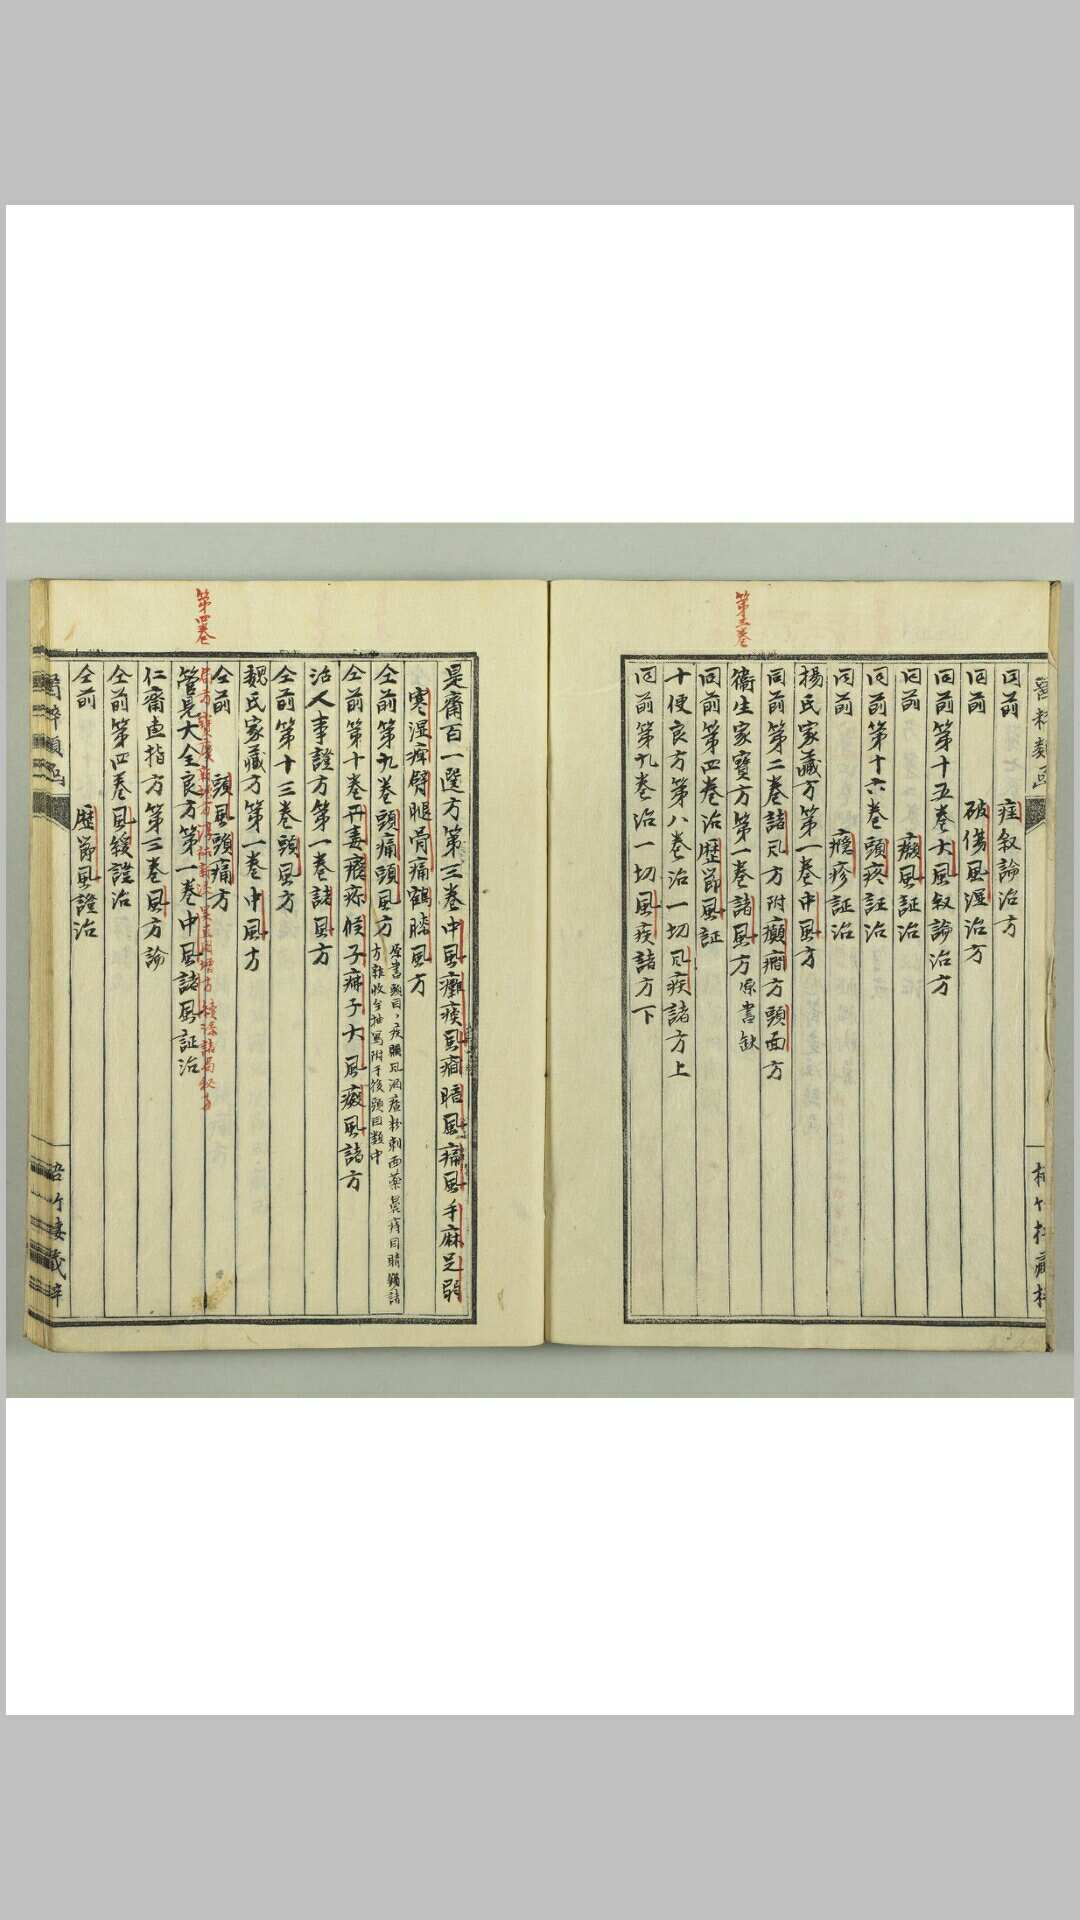 醫粹類函
同前 痓叙論治方
同前 破傷風溼治方
同前第十五卷大風叙論治方
同前 癩風証治
同前第十六卷頭疼証治
同前 癮疹証治
楊氏家藏方第一卷中風方
同前第二卷諸風方附癲癇方頭面方
第三卷
衛生家寶方第一卷諸風方原書缺
同前第四卷治歷節風証
十便良方第八卷治一切風疾諸方上
同前第九卷治一切風疾諸方下
是齋百一選方第三卷中風癱瘓風癇暗風痛風手麻足弱
寒濕痺臂腿骨痛鶴膝風方
仝前第九卷頭痛頭風方
仝前第十卷丹毒癮疹
大風癜風諸方
治人事證方第一卷諸風方
仝前第十三卷頭風方
魏氏家藏方第一卷中風方
仝前 頭風頭痛方
第四卷
管見大全良方第一卷中風諸風証治
仁齋直指方第三卷風方論
仝前第四卷風緩證治
仝前 歷節風證治